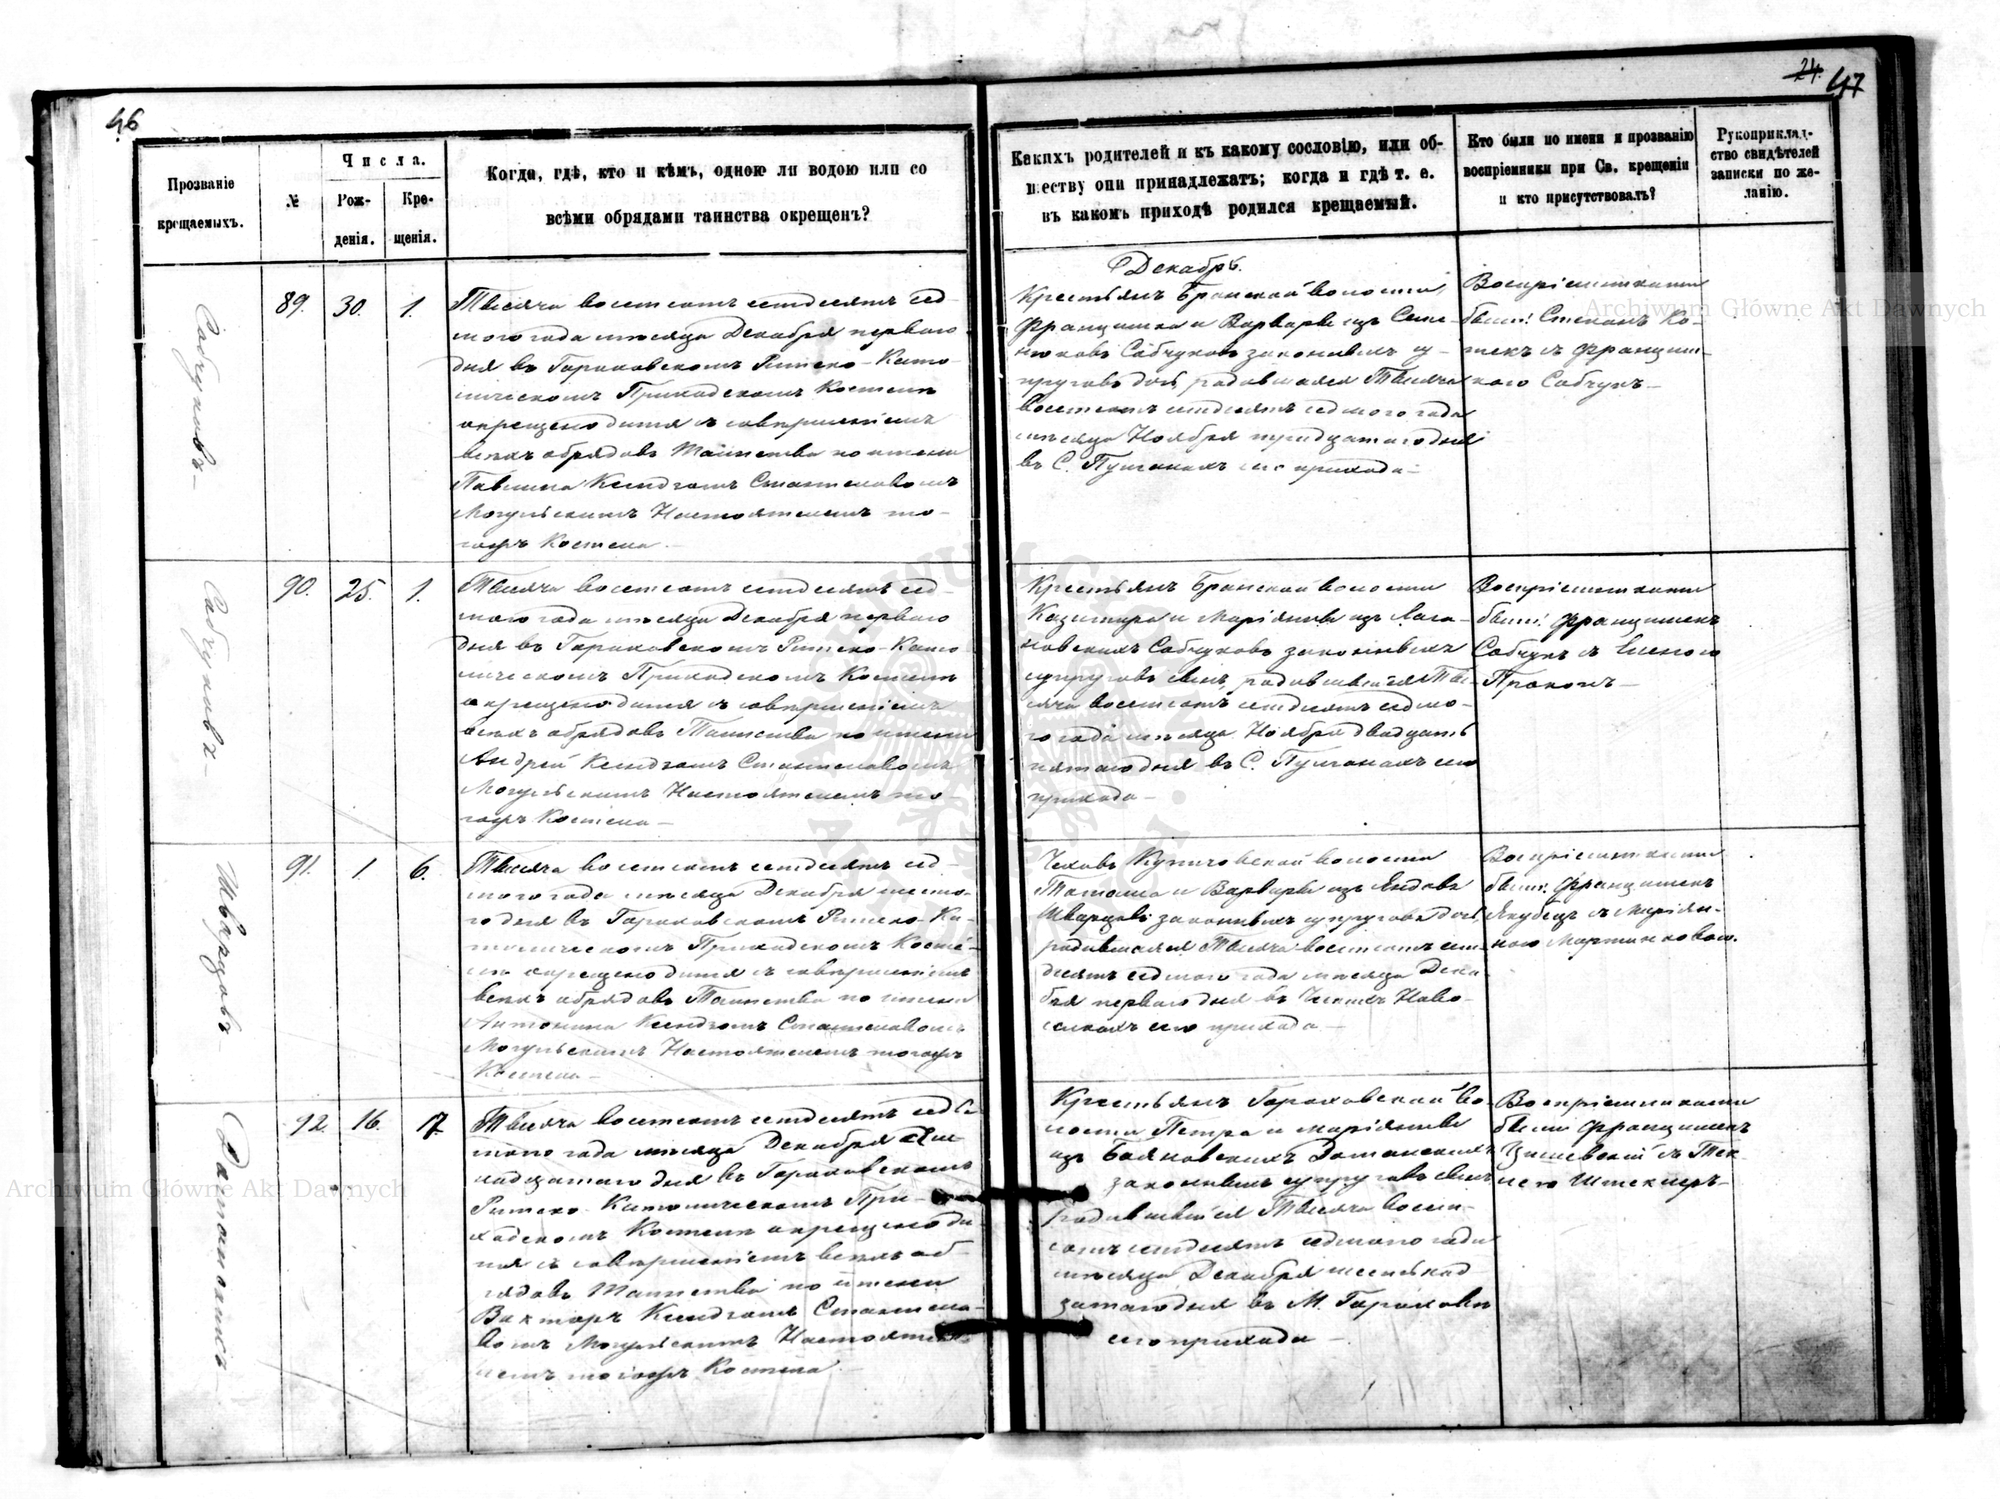 46
Прозваніе
крещаемыхъ.
№
Числа.
Рож-
денія.
Кре-
щенія.
Когда, гдѣ, кто и кѣмъ, одною ли водою или со
всѣми обрядами таинства окрещенъ?
Сабчуковъ
89.
30.
1.
Тысяча восемсотъ семдесятъ сед-
мого года мѣсяца Декабря перваго
дня въ Гороховскомъ Римско-Като-
лическомъ Приходскомъ Костелѣ
окрещено дитя съ совершеніемъ
всѣхъ обрядовъ Таинства по имени
Павлина Ксендзомъ Станиславомъ
Могульскимъ Настоятелемъ то-
гожъ Костела.
Сабчуковъ
90.
25.
1.
Тысяча восемсотъ семдесятъ сед-
мого года мѣсяца Декабря перваго
дня въ Гороховскомъ Римско-Като
лическомъ Приходскомъ Костелѣ
окрещено дитя съ совершеніемъ
всѣхъ обрядовъ Таинства по имени
Андрей Ксендзомъ Станиславомъ
Могульскимъ Настоятелемъ то
гожъ Костела
Шварцовъ
91.
1.
6.
Тысяча восемсотъ семдесятъ сед-
мого года мѣсяца Декабря шесто-
го дня въ Гороховскомъ Римско-Ка-
толическомъ Приходскомъ Косте-
лѣ окрещено дитя съ совершеніемъ
всѣхъ обрядовъ Таинства по имени
Антонина Ксендзомъ Станиславомъ
Могульскимъ Настоятелемъ тогожъ
Костела
92.
16.
17.
Тысяча восемсотъ семдесятъ седь
мого года мѣсяца Декабря
надцатого дня въ Гороховскомъ
Римско-Католическомъ При-
ходскомъ Костелѣ окрещено ди-
тя съ совершеніемъ всѣхъ об-
рядовъ Таинства по имени
Викторъ Ксендзомъ Станисла-
вомъ Могульскимъ Настояте-
лемъ тогожъ Костела
24.
47
Какихъ родителей и къ какому сословію, или об-
ществу они принадлежатъ; когда и гдѣ т. е.
въ какомъ приходѣ родился крещаемый.
Кто были по имени и прозванію
воспріемники при Св. крещеніи
и кто присутствовалъ?
Рукоприклад-
ство свидѣтелей
записки по же-
ланію.
Декабрь.
Крестьянъ Бранской волости,
Францишка и Варвары изъ Семе-
нюковъ Сабчуковъ законныхъ су-
пруговъ дочь, родившаяся Тысяча
восемсотъ семдесятъ седмого года
мѣсяца Ноября тридцатого дня
въ С. сего прихода
Воспріемниками
были: Степанъ Ко-
съ Францишк-
Сабчукъ
Крестьянъ Бранской волости
Казимира и Маріянны изъ
Сабчуковъ законныхъ
супруговъ сынъ, родившійся Ты-
сяча восемсотъ семдесятъ седмо-
го года мѣсяца Ноября двадцать
пятаго дня въ С. сего
прихода
Воспріемниками
были: Францишекъ
Сабчукъ съ Еленою
Прокопъ
Чеховъ Купичовской волости
Томаша и Варвары изъ
законныхъ супруговъ дочь,
родившаяся Тысяча восемсотъ сем-
десятъ седмого года мѣсяца Дека
бря перваго дня въ Чехахъ Ново-
сего прихода
Воспріемниками
были: Францишекъ
Якубецъ съ Маріян-
ною Мартинковою.
Крестьянъ Гороховской во-
лости Петра и Маріянны
изъ Бояновскихъ
законныхъ супруговъ сынъ
родившійся Тысяча восем-
сотъ семдесятъ седмого года
мѣсяца Декабря шестьнад
цатого дня въ М. Гороховѣ
сего прихода
Воспріемниками
были Францишекъ
съ Тек-
лею
Archiwum Główne Akt Dawnych
Archiwum Główne Akt Dawnych